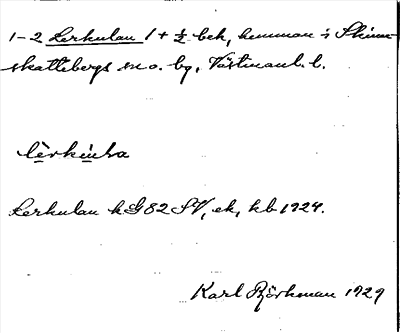 1-2 Lerkulan 1 + ½ bek, hemman i Skinn-
skattebergs sn o. bg, Västmanl. l.
Lerkulan kG82 SV, ek, kb 1924.
Karl Björkman 1929